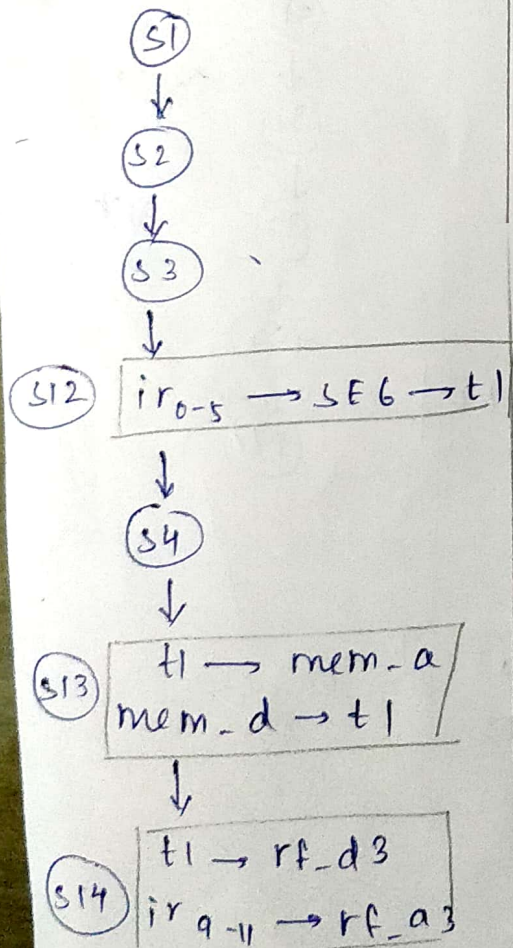 S1
↓
S2
↓
S3
↓
S12 ir0-5 → SE6 → t1
↓
S4
↓
S13 t1 → mem_a
mem_d → t1
↓
S14 t1 → rf_d3
ir9-11 → rf_a3